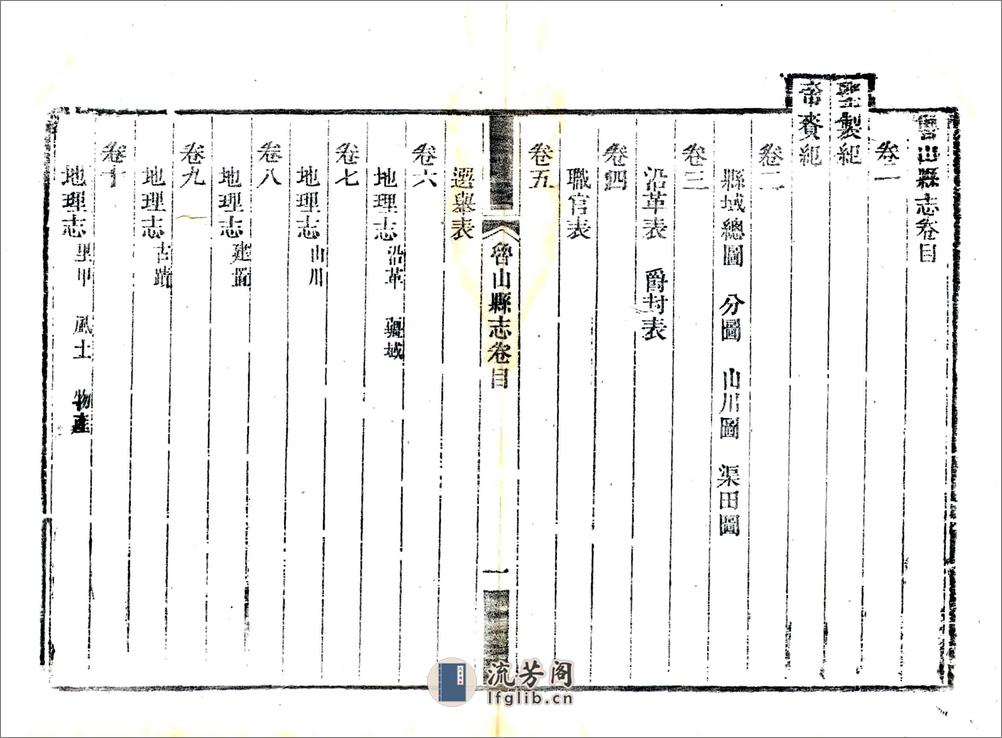 魯山縣志卷目
卷一
聖製紀
帝賚紀
卷二
縣域總圖 分圖 山川圖 渠田圖
卷三
沿革表 爵封表
卷四
職官表
卷五
魯山縣志卷目 一
選舉表
卷六
地理志 沿革 疆域
卷七
地理志 山川
卷八
地理志 建置
卷九
地理志 古蹟
卷十
地理志 里甲 風土 物產
流芳阁
lfglib.cn